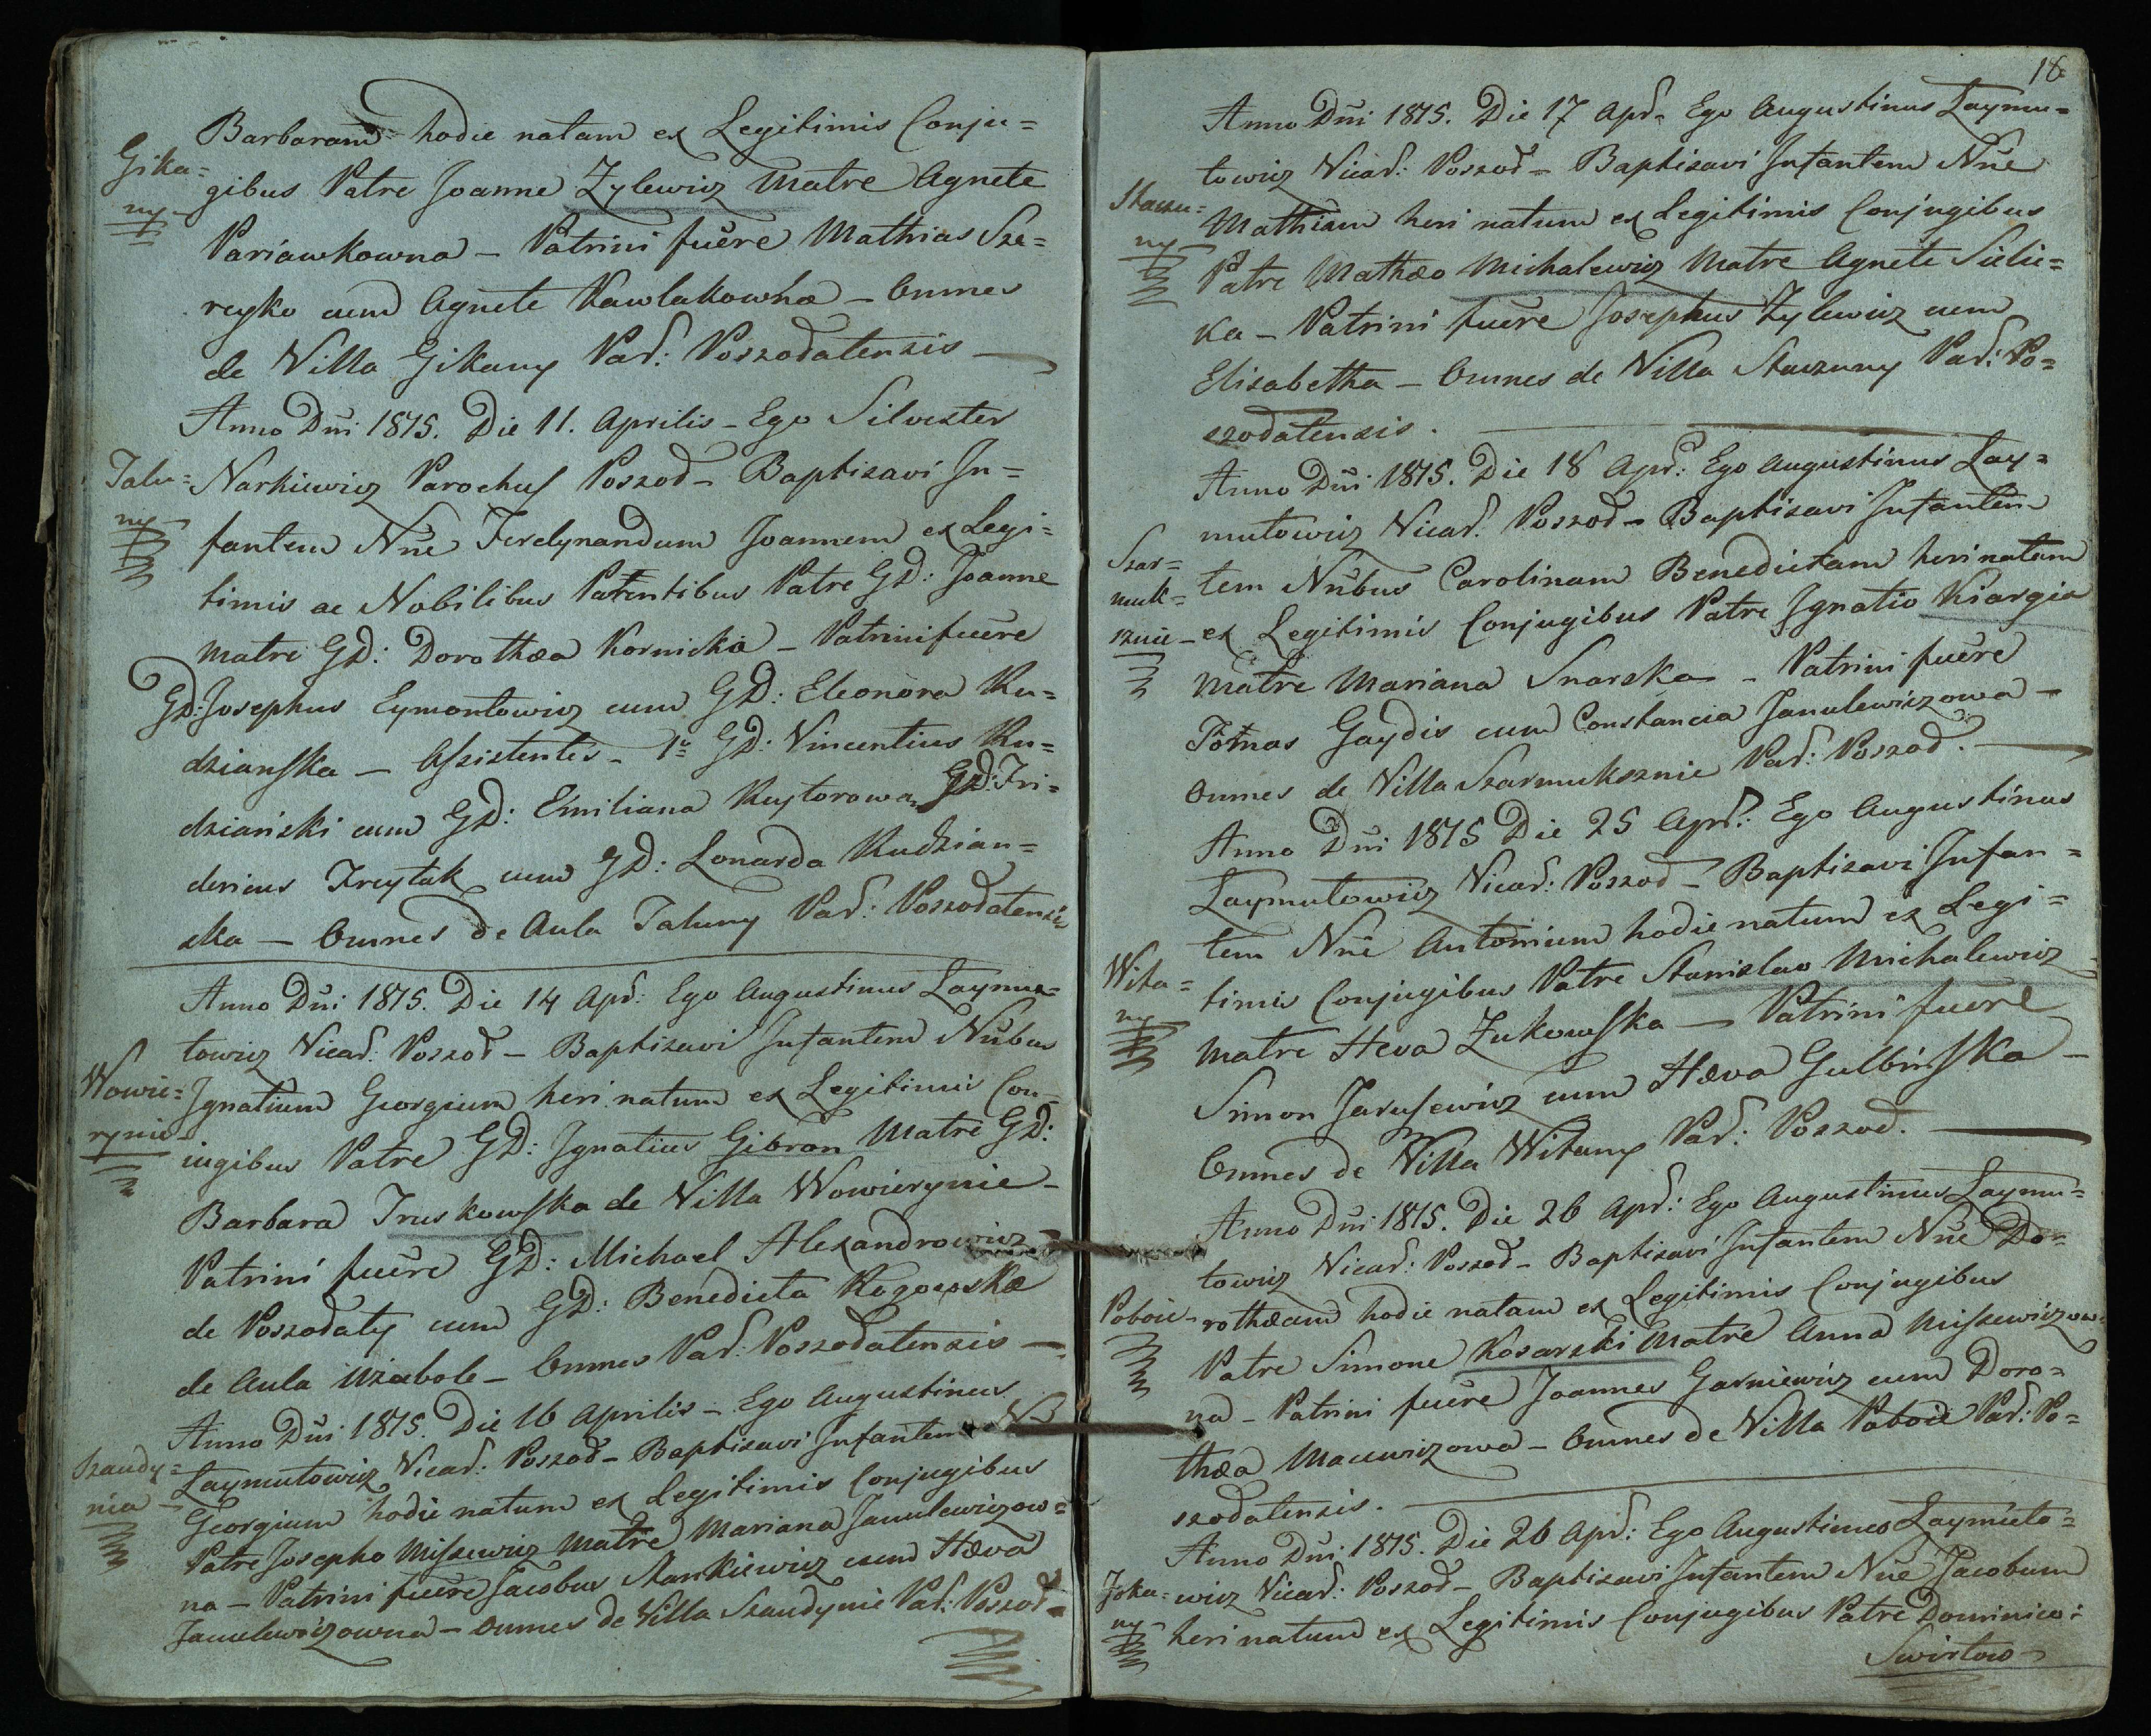 Barbaram hodie natam ex Legitimis Conju=
Gika=
ny
gibus Patre Joanne Zylewicz Matre Agnete
Pariawkowna – Patrini fuere Mathias Sze=
reyko cum Agnete Pawlakowna – Omnes
de Villa Gikany Par: Poszodatensis –
Anno Dni 1815. Die 11. Aprilis – Ego Silvester
Talu=
ny
Narkiewicz Parochus Poszod – Baptisavi In=
fantem Nne Ferdynandum Joannem ex Legi=
timis ac Nobilibus Parentibus Patre GD: Joanne
Matre GD: Dorothea Kornicka – Patrini fuere
GD: Josephus Eymontowicz cum GD: Eleonora Ru=
dzianska – Assistentes – 1o GD: Vincentius Ru=
dzianski cum GD: Emiliana Reytorowa, GD: Fri=
dericus Freytak cum GD: Lonarda Rudzian=
ska – Omnes de Aula Taluny Par: Poszodatensis
Anno Dni 1815. Die 14 Apr: Ego Augustinus Laymu=
towicz Vicar: Poszod – Baptisavi Infantem Nnbus
Wowie=
rynie
Ignatium Georgium heri natum ex Legitimis Con=
iugibus Patre GD: Ignatius Gibron Matre GD:
Barbara Truskowska de Villa Wowierynie –
Patrini fuere GD: Michael Alexandrowicz
de Poszodaty cum GD: Benedicta Rogowska
de Aula Uziebole – Omnes Par: Poszodatensis –
Anno Dni 1815. Die 16 Aprilis – Ego Augustinus
Szaudy=
nia
Laymutowicz Vicar: Poszod – Baptisavi Infantem N
Georgium hodie natum ex Legitimis Conjugibus
Patre Josepho Misszewicz Matre Mariana Janulewiczow=
na – Patrini fuere Jacobus Stankiewicz cum Hæva
Janulewiczowna – Omnes de Villa Szaudynie Par: Poszod
18
Anno Dni 1815. Die 17 Apr. Ego Augustinus Laymu=
towicz Vicar: Poszod – Baptisavi Infantem Nne
Staszu=
ny
Mathiam heri natum ex Legitimis Conjugibus
Patre Mathæo Michalewicz Matre Agnete Sielic=
ka – Patrini fuere Josephus Zylewicz cum
Elisabetha – Omnes de Villa Staszuny Par: Po=
szodatensis.
Anno Dni 1815. Die 18 Apr: Ego Augustinus Lay=
mutowicz Vicar. Poszod – Baptisavi Infan
Szar=
muk=
sznie –
tem Nnbus Carolinam Benedictam heri natam
ex Legitimis Conjugibus Patre Ignatio Kiargia
Matre Mariana Snarska – Patrini fuere
Tomas Gaydis cum Constancia Janulewiczowa –
Omnes de Villa Szarmuksznie Par: Poszod. –
Anno Dni 1815 Die 25 Apr: Ego Augustinus
Laymutowicz Vicar: Poszod – Baptisavi Infan=
tem Nne Antonium hodie natum ex Legi=
Wita=
ny
timis Conjugibus Patre Stanislao Michalewicz
Matre Heva Zukowska – Patrini fuere
Simon Jarusewicz cum Hæva Gulbinska –
Omnes de Villa Witany Par: Poszod. –
Anno Dni 1815. Die 26 Apr: Ego Augustinus Laymu=
towicz Vicar: Poszod – Baptisavi Infantem Nne Do=
Poboie –
rothæam hodie natam ex Legitimis Conjugibus
Patre Simone Kosarski Matre Anna Misszewiczow
na – Patrini fuere Joannes Gasniewicz cum Doro=
thæa Macewizowa – Omnes de Villa Poboie Par: Po=
szodatensis.
Anno Dni 1815. Die 26 Apr: Ego Augustinus Laymuto=
Joka=
ny
wicz Vicar: Poszod – Baptisavi Infantem Nne Jacobum
heri natum ex Legitimis Conjugibus Patre Dominico:
Swirtow